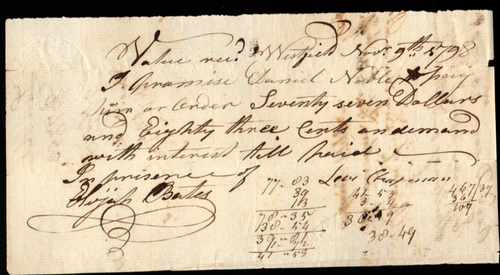 Value recd Westfield Novr 9th 1798
I promise Daniel Noble to pay
him or order Seventy seven Dollars
and Eighty three Cents on demand
with interest till paid
In presence of Levi Chapman
Elijah Bates
77.83
39
113
78-35
138-54
38-49